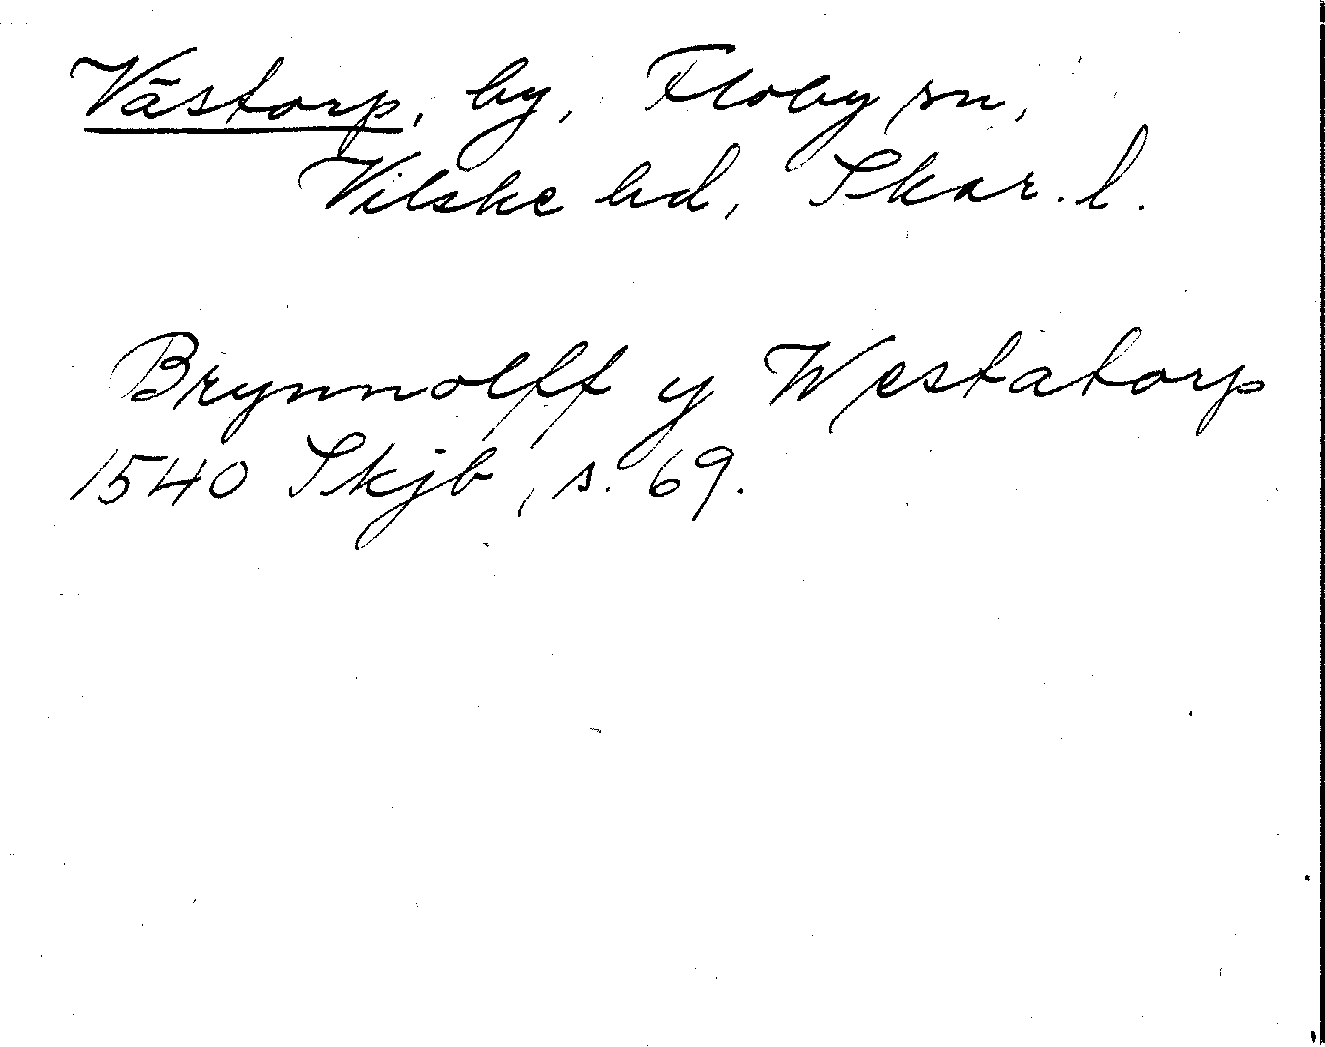 Västorp, by, Floby sn,
Vilske hd, Skar. l.
Brynnolff y Westatorp
1540 Skjb, s. 69.